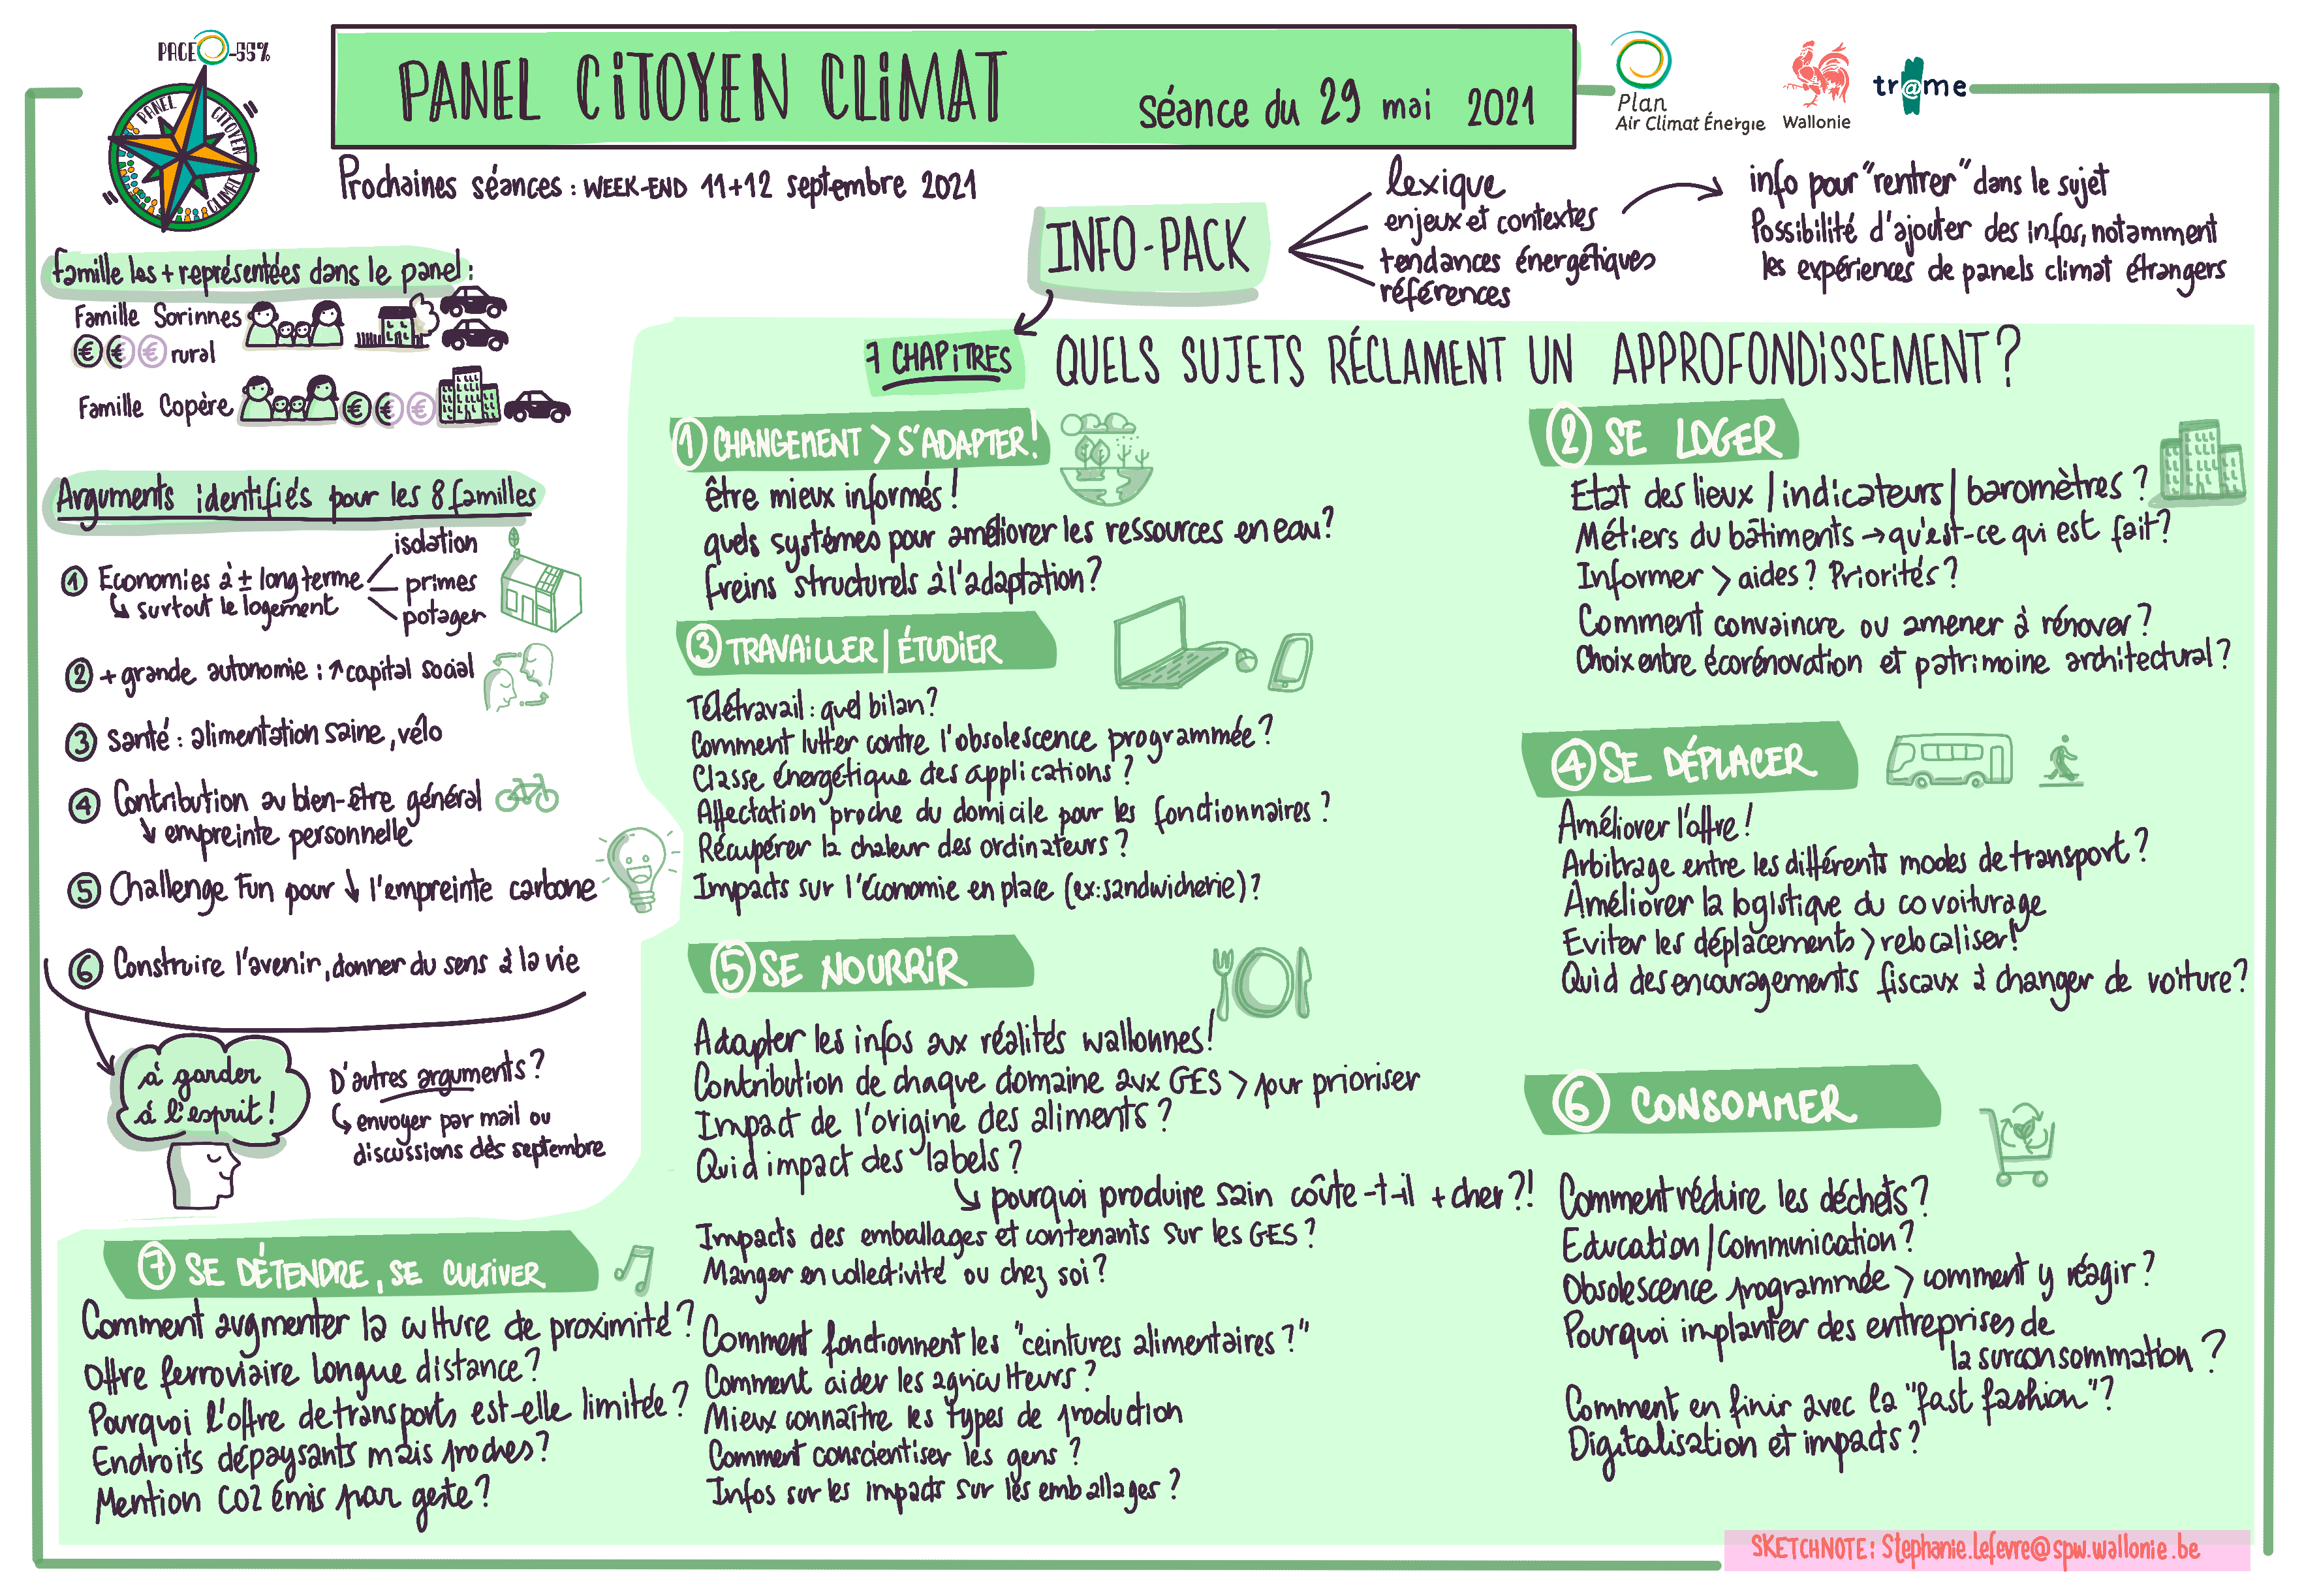 PACE -55%
PANEL CITOYEN CLIMAT
PANEL CITOYEN CLIMAT
séance du 29 mai 2021
Plan
Air Climat Énergie
Wallonie
tr@me
Prochaines séances : WEEK-END 11+12 septembre 2021
INFO-PACK
lexique
enjeux et contextes
tendances énergétiques
références
info pour "rentrer" dans le sujet
Possibilité d'ajouter des infos, notamment
les expériences de panels climat étrangers
famille les + représentées dans le panel :
Famille Sorinnes
€ € € rural
Famille Copère € € €
Arguments identifiés pour les 8 familles
1 Economies à ± long terme
↳ surtout le logement
isolation
primes
potager
2 + grande autonomie : ↗ capital social
3 Santé : alimentation saine, vélo
4 Contribution au bien-être général
↳ empreinte personnelle
5 Challenge Fun pour ↓ l'empreinte carbone
6 Construire l'avenir, donner du sens à la vie
à garder
à l'esprit !
D'autres arguments ?
↳ envoyer par mail ou
discussions dès septembre
7 CHAPITRES
QUELS SUJETS RÉCLAMENT UN APPROFONDISSEMENT ?
1 CHANGEMENT > S'ADAPTER !
être mieux informés !
quels systèmes pour améliorer les ressources en eau ?
freins structurels à l'adaptation ?
2 SE LOGER
Etat des lieux / indicateurs / baromètres ?
Métiers du bâtiments → qu'est-ce qui est fait ?
Informer > aides ? Priorités ?
Comment convaincre ou amener à rénover ?
Choix entre écorénovation et patrimoine architectural ?
3 TRAVAILLER | ÉTUDIER
Télétravail : quel bilan ?
Comment lutter contre l'obsolescence programmée ?
Classe énergétique des applications ?
Affectation proche du domicile pour les fonctionnaires ?
Récupérer la chaleur des ordinateurs ?
Impacts sur l'économie en place (ex: sandwicherie) ?
4 SE DÉPLACER
Améliorer l'offre !
Arbitrage entre les différents modes de transport ?
Améliorer la logistique du covoiturage
Eviter les déplacements > relocaliser !
Quid des encouragements fiscaux à changer de voiture ?
5 SE NOURRIR
Adapter les infos aux réalités wallonnes !
Contribution de chaque domaine aux GES > pour prioriser
Impact de l'origine des aliments ?
Quid impact des labels ?
↳ pourquoi produire sain coûte-t-il + cher ?!
Impacts des emballages et contenants sur les GES ?
Manger en collectivité ou chez soi ?
Comment fonctionnent les "ceintures alimentaires ?"
Comment aider les agriculteurs ?
Mieux connaître les types de production
Comment conscientiser les gens ?
Infos sur les impacts sur les emballages ?
6 CONSOMMER
Comment réduire les déchets ?
Education / Communication ?
Obsolescence programmée > comment y réagir ?
Pourquoi implanter des entreprises de
la surconsommation ?
Comment en finir avec la "fast fashion" ?
Digitalisation et impacts ?
7 SE DÉTENDRE, SE CULTIVER
Comment augmenter la culture de proximité ?
Offre ferroviaire longue distance ?
Pourquoi l'offre de transports est-elle limitée ?
Endroits dépaysants mais proches ?
Mention CO2 émis par geste ?
SKETCHNOTE : Stephanie.lefevre@spw.wallonie.be